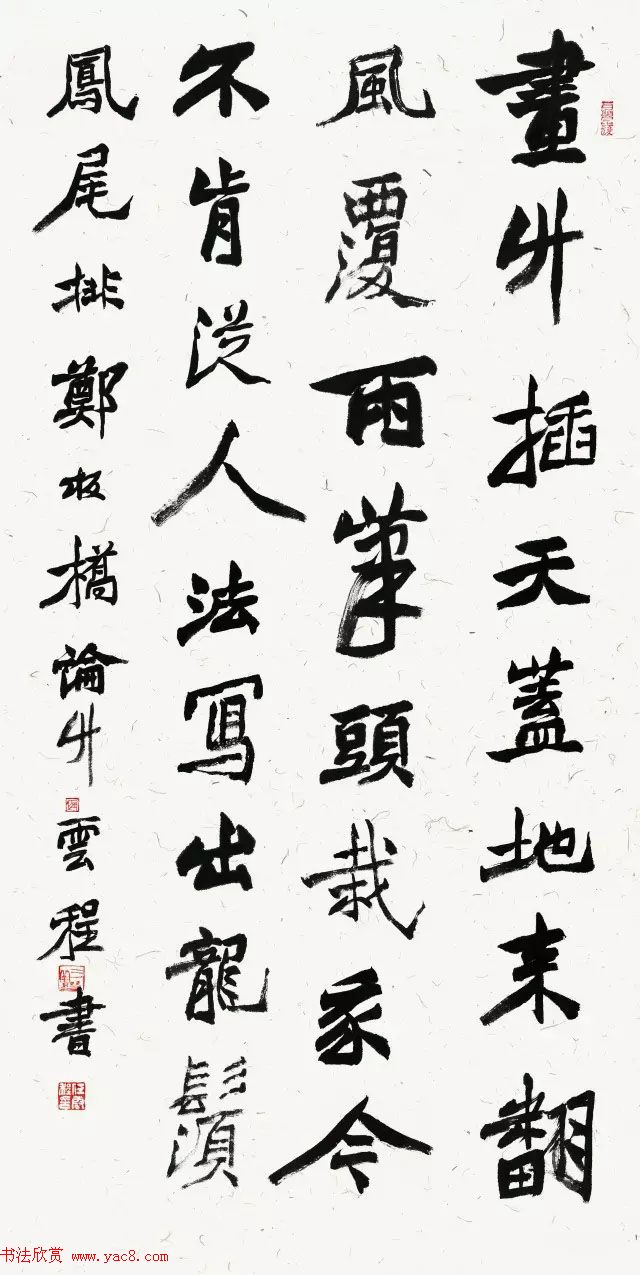 畫竹插天蓋地来翻
風覆雨筆頭栽我今
不肯從人法寫出龍鬚
鳳尾排鄭板橋論竹雲程書
书法欣赏 www.yac8.com